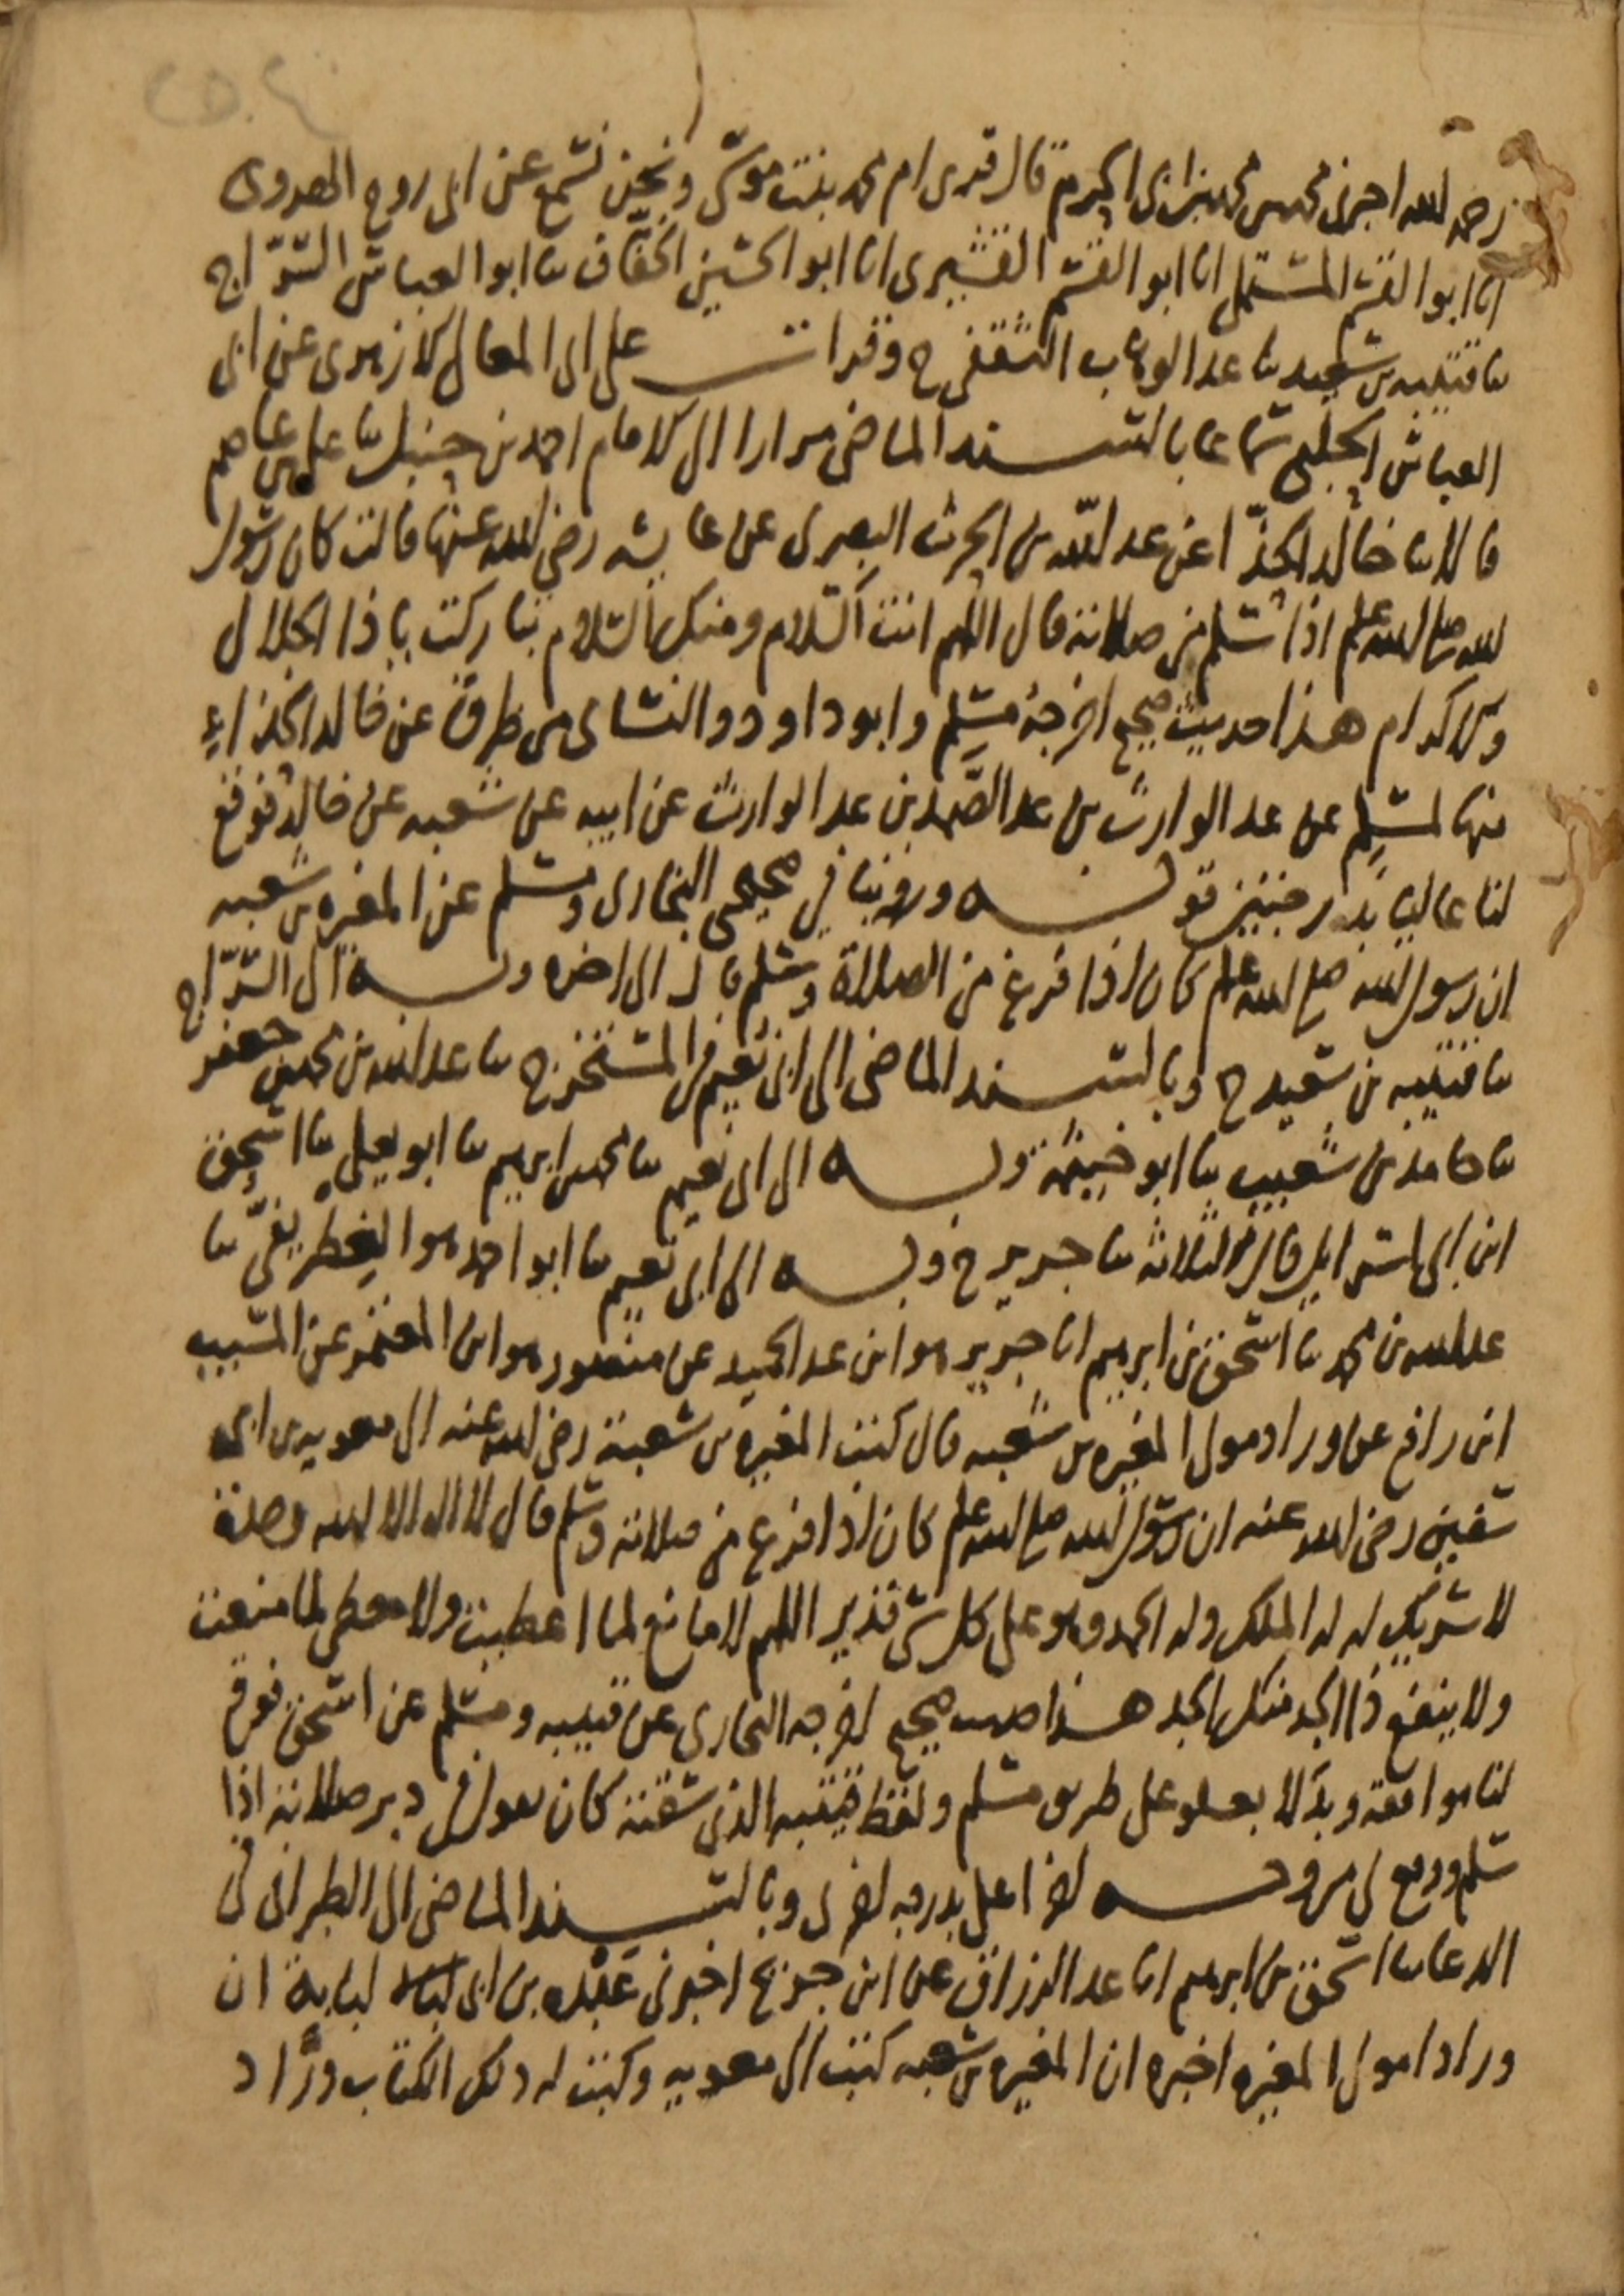 رحمه الله اخبرنى محمد بن محمد بن ابى الحرم قال قرى ام محمد بنت موسى ونحن نسمع عن ابى روح الهروى
انا ابو القسم المستملى انا ابو القسم القشيرى انا ابو الحسين الخفاف ثنا ابو العباس السراج
ثنا قتيبه بن سعيد ثنا عبد الوهاب الثقفى ح وقرات على ابى المعالى الازهرى عن ابى
العباس الحلبى سماعا بالسند الماضى مرارا الى الامام احمد بن حنبل ثنا على بن عاصم
قالا ثنا خالد الحذّا عن عبد الله بن الحرث البصرى عن عايشه رضى الله عنها قالت كان رسول
الله صلى الله عليه وسلم اذا سلم من صلاته قال اللهم انت السلام ومنك السلام تباركت يا ذا الجلال
والاكرام هذا حديث صحيح اخرجه مسلم وابو داود والنساى من طرق عن خالد الحذاء
منها لمسلم عن عبد الوارث بن عبد الصمد بن عبد الوارث عن ابيه عن شعبه عن خالد فوقع
لنا عاليا بدرجتين قوله وروينا فى صحيحى البخارى ومسلم عن المغيره بن شعبه
ان رسول الله صلى الله عليه وسلم كان اذا فرغ من الصلاة وسلم قال الى اخره وبه الى السرّاج
ثنا قتيبه بن سعيد ح وبالسند الماضى الى ابى نعيم فى المستخرج ثنا عبد الله بن محمد بن جعفر
ثنا حامد بن شعيب ثنا ابو خيثمة وبه الى ابى نعيم ثنا محمد بن ابرهيم ثنا ابو يعلى ثنا اسحق
ابن ابى اسرايل قال الثلاثه ثنا جرير ح وبه الى ابى نعيم ثنا ابو احمد هو الغطريفىّ ثنا
عبد الله بن محمد ثنا اسحق بن ابرهيم انا جرير هو ابن عبد الحميد عن منصور هو ابن المعتمر عن المسيب
ابن رافع عن وراد مولى المغيره بن شعبه قال كتب المغيره بن شعبة رضى الله عنه الى معويه بن ابى
سفين رضى الله عنه ان رسول الله صلى الله عليه وسلم كان اذا فرغ من صلاته وسلم قال لا اله الا الله وحده
لا شريك له له الملك وله الحمد وهو على كل شى قدير اللهم لا مانع لما اعطيت ولا معطى لما منعت
ولا ينفع ذا الجد منك الجد هذا حديث صحيح اخرجه البخارى عن قتيبه ومسلم عن اسحق فوقع
لنا موافقة وبدلا بعلو على طريق مسلم ولفظ قتيبه الذى سقته كان يقول فى دبر صلاته اذا
سلم ووقع لى من وجه اخر اعلى بدرجه اخرى وبالسند الماضى الى الطبرانى فى
الدعا ثنا اسحق بن ابرهيم انا عبد الرزاق عن ابن جريج اخبرنى عبده بن ابى لبابة ان
ورادا مولى المغيره اخبره ان المغيره بن شعبه كتب الى معويه وكتب له ذلك الكتاب ورّاد